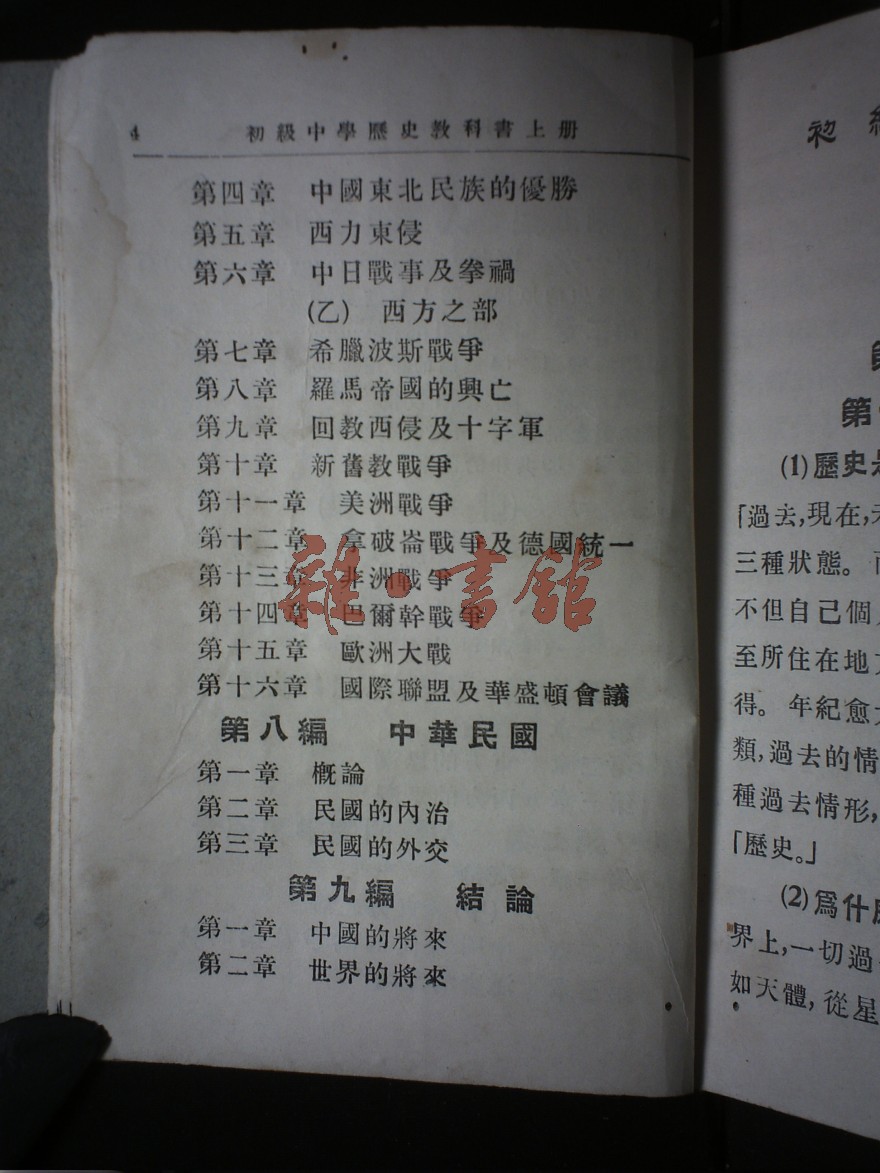 4 初級中學歷史教科書上册
第四章 中國東北民族的優勝
第五章 西力東侵
第六章 中日戰事及拳禍
(乙) 西方之部
第七章 希臘波斯戰爭
第八章 羅馬帝國的興亡
第九章 回教西侵及十字軍
第十章 新舊教戰爭
第十一章 美洲戰爭
第十二章 拿破崙戰爭及德國統一
第十三章 非洲戰爭
第十四章 巴爾幹戰爭
第十五章 歐洲大戰
第十六章 國際聯盟及華盛頓會議
第八編 中華民國
第一章 概論
第二章 民國的內治
第三章 民國的外交
第九編 結論
第一章 中國的將來
第二章 世界的將來
雜·書館
初
第
(1)歷史
「過去,現在,
三種狀態。
不但自己個
至所住在地
得。 年紀愈
類,過去的情
種過去情形,
「歷史。」
(2)爲什
界上,一切過
如天體, 從星